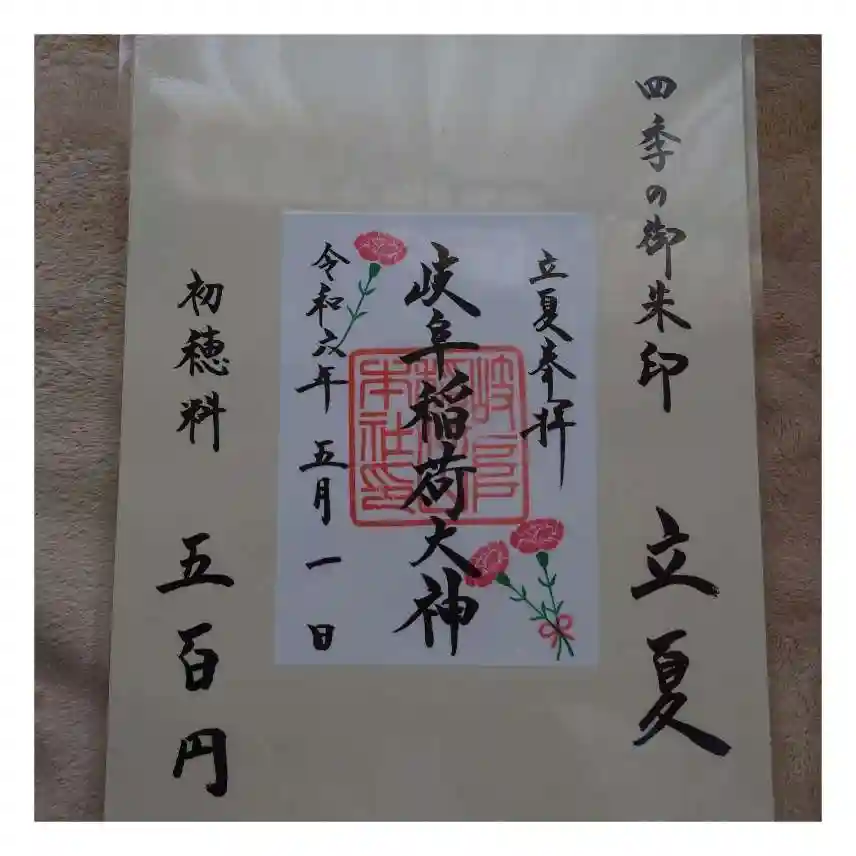 四季の御朱印 立夏
立夏奉拝
岐阜稲荷大神
令和六年 五月 一 日
初穂料 五百円